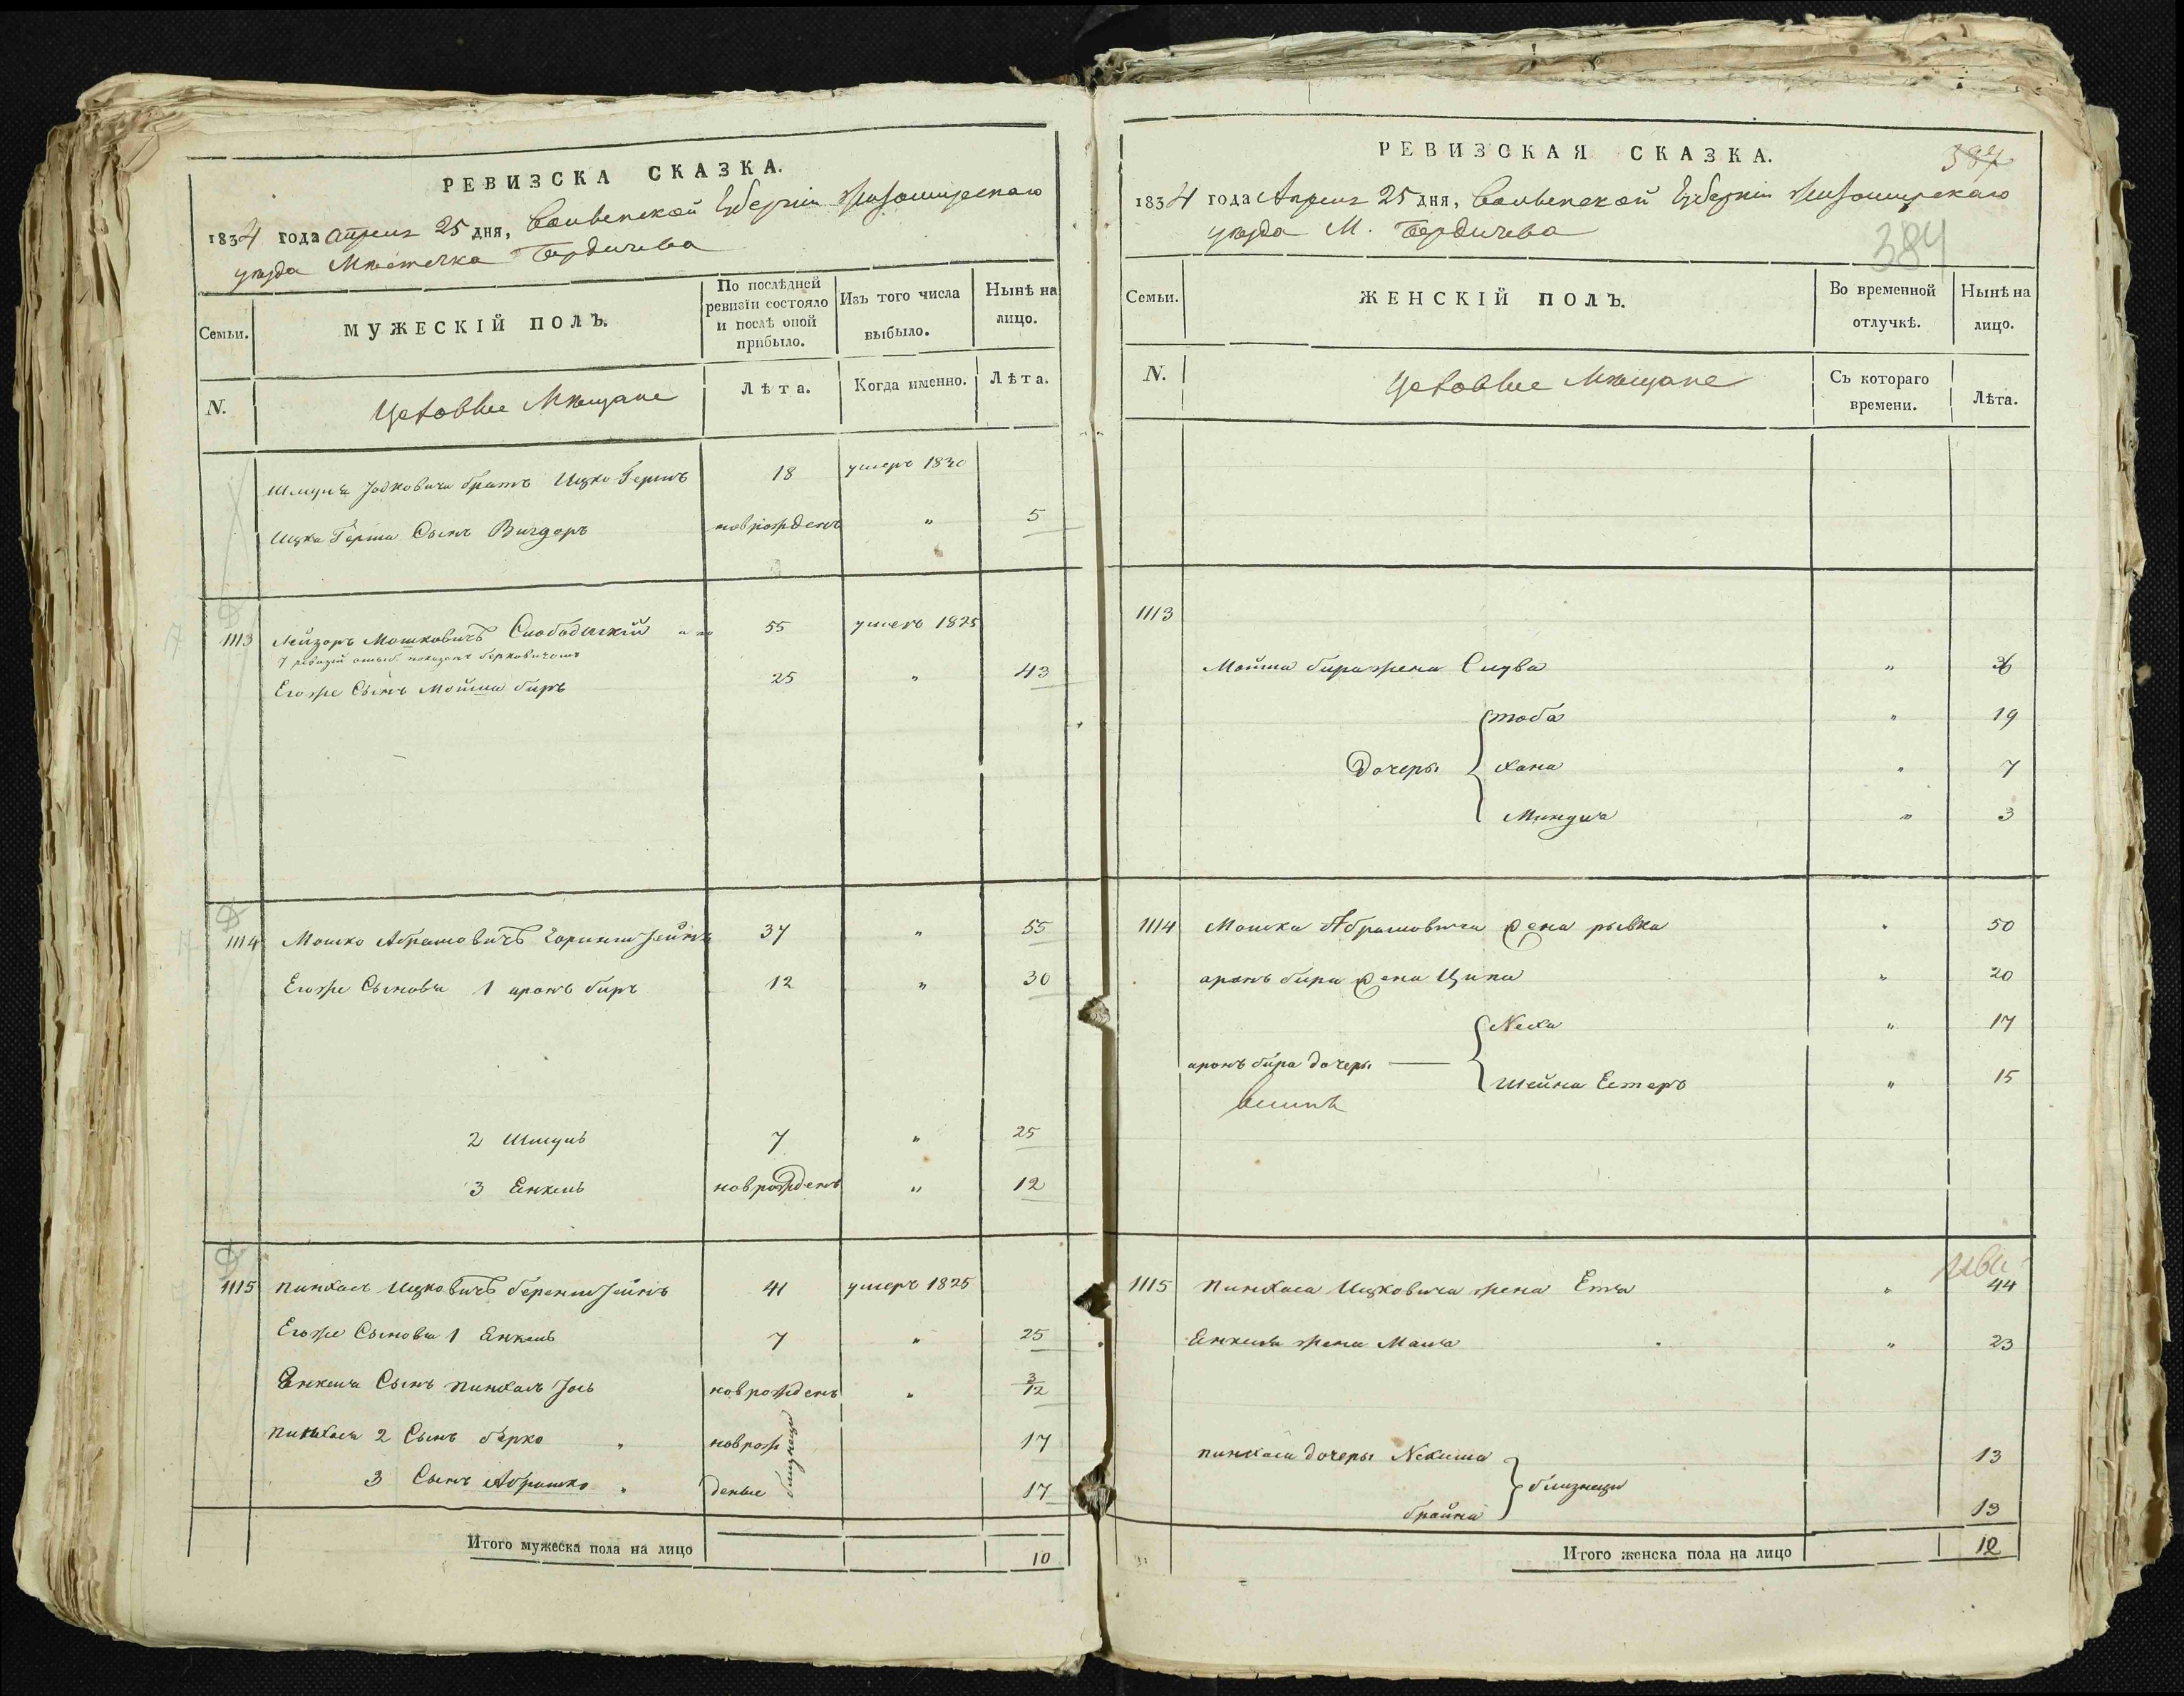 РЕВИЗСКА СКАЗКА.
1834 года апреля 25 дня, Волынской Губернии Житомирскаго
уезда Местечка Бердичева
Семьи.
МУЖЕСКІЙ ПОЛЪ.
По послѣдней ревизіи состояло и послѣ оной прибыло.
Изъ того числа выбыло.
Нынѣ на лицо.
N.
Цеховые Мѣщане
Лѣта.
Когда именно.
Лѣта.
Шмуля Іосковича братъ Ицко Гершъ 18 умеръ 1830
Ицка Герша Сынъ Вигдоръ новрожденъ " 5
1113 Лейзоръ Мошковичъ Слободскій а по 55 умеръ 1825
7 ревизіи ошиб. показанъ берковичомъ
Егоже Сынъ Мойша биръ 25 " 43
1114 Мошко Абрамовичъ 37 " 55
Егоже Сыновья 1 аронъ биръ 12 " 30
2 Шмуль 7 " 25
3 Енкель новрожденъ " 12
1115 пинхасъ Ицковичъ беренштейнъ 41 умеръ 1825
Егоже Сыновья 1 Енкель 7 " 25
Енкеля Сынъ пинхасъ Іось новрожденъ " 3/12
пинхаса 2 Сынъ берко " новрож 17
3 Сынъ Абрамко " денные 17
близнецы
Итого мужеска пола на лицо 10
РЕВИЗСКАЯ СКАЗКА.
387
1834 года Апреля 25 дня, Волынской Губернии Житомирскаго
уезда М. Бердичева
384
Семьи.
ЖЕНСКІЙ ПОЛЪ.
Во временной отлучкѣ.
Нынѣ на лицо.
N.
Цеховые Мѣщане
Съ котораго времени.
Лѣта.
1113
Мойша бира жена Слува " 36
Дочеры
тоба " 19
хана " 7
Миндля " 3
1114 Мошка Абрамовича жена рывка " 50
аронъ бира жена Ципа " 20
аронъ бира дочеры
Неха " 17
Шейна Естеръ " 15
1115 Пинхаса Ицковича жена Етя " 44
Енкеля жена Маля " 23
пинхаса дочеры Нехама 13
близнецы
брайна 13
Итого женска пола на лицо 12